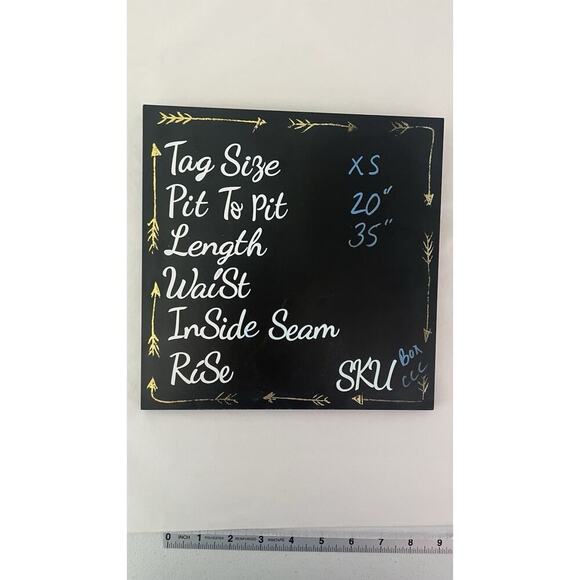 Tag Size XS
Pit To Pit 20"
Length 35"
WaiSt
InSide Seam
RiSe
SKU Box CCC
0 INCH 1 2 3 4 5 6 7 8 9